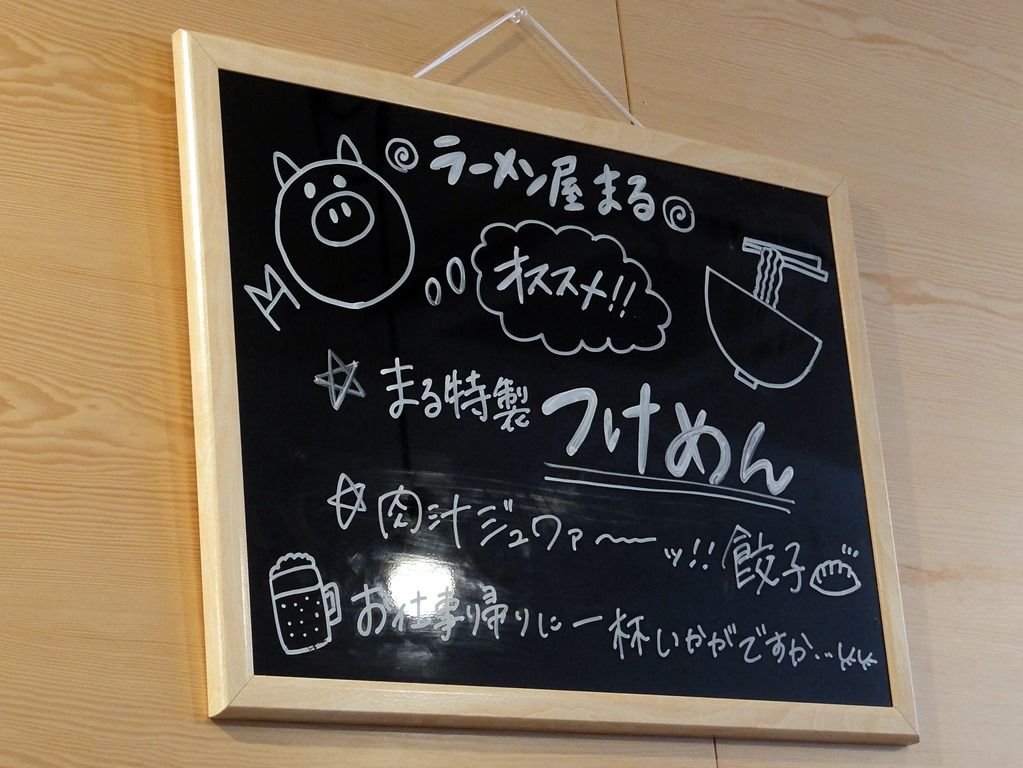 ラーメン屋まる
オススメ!!
☆まる特製つけめん
☆肉汁ジュワァ〜〜ッ!!餃子
お仕事帰りに一杯いかがですか…